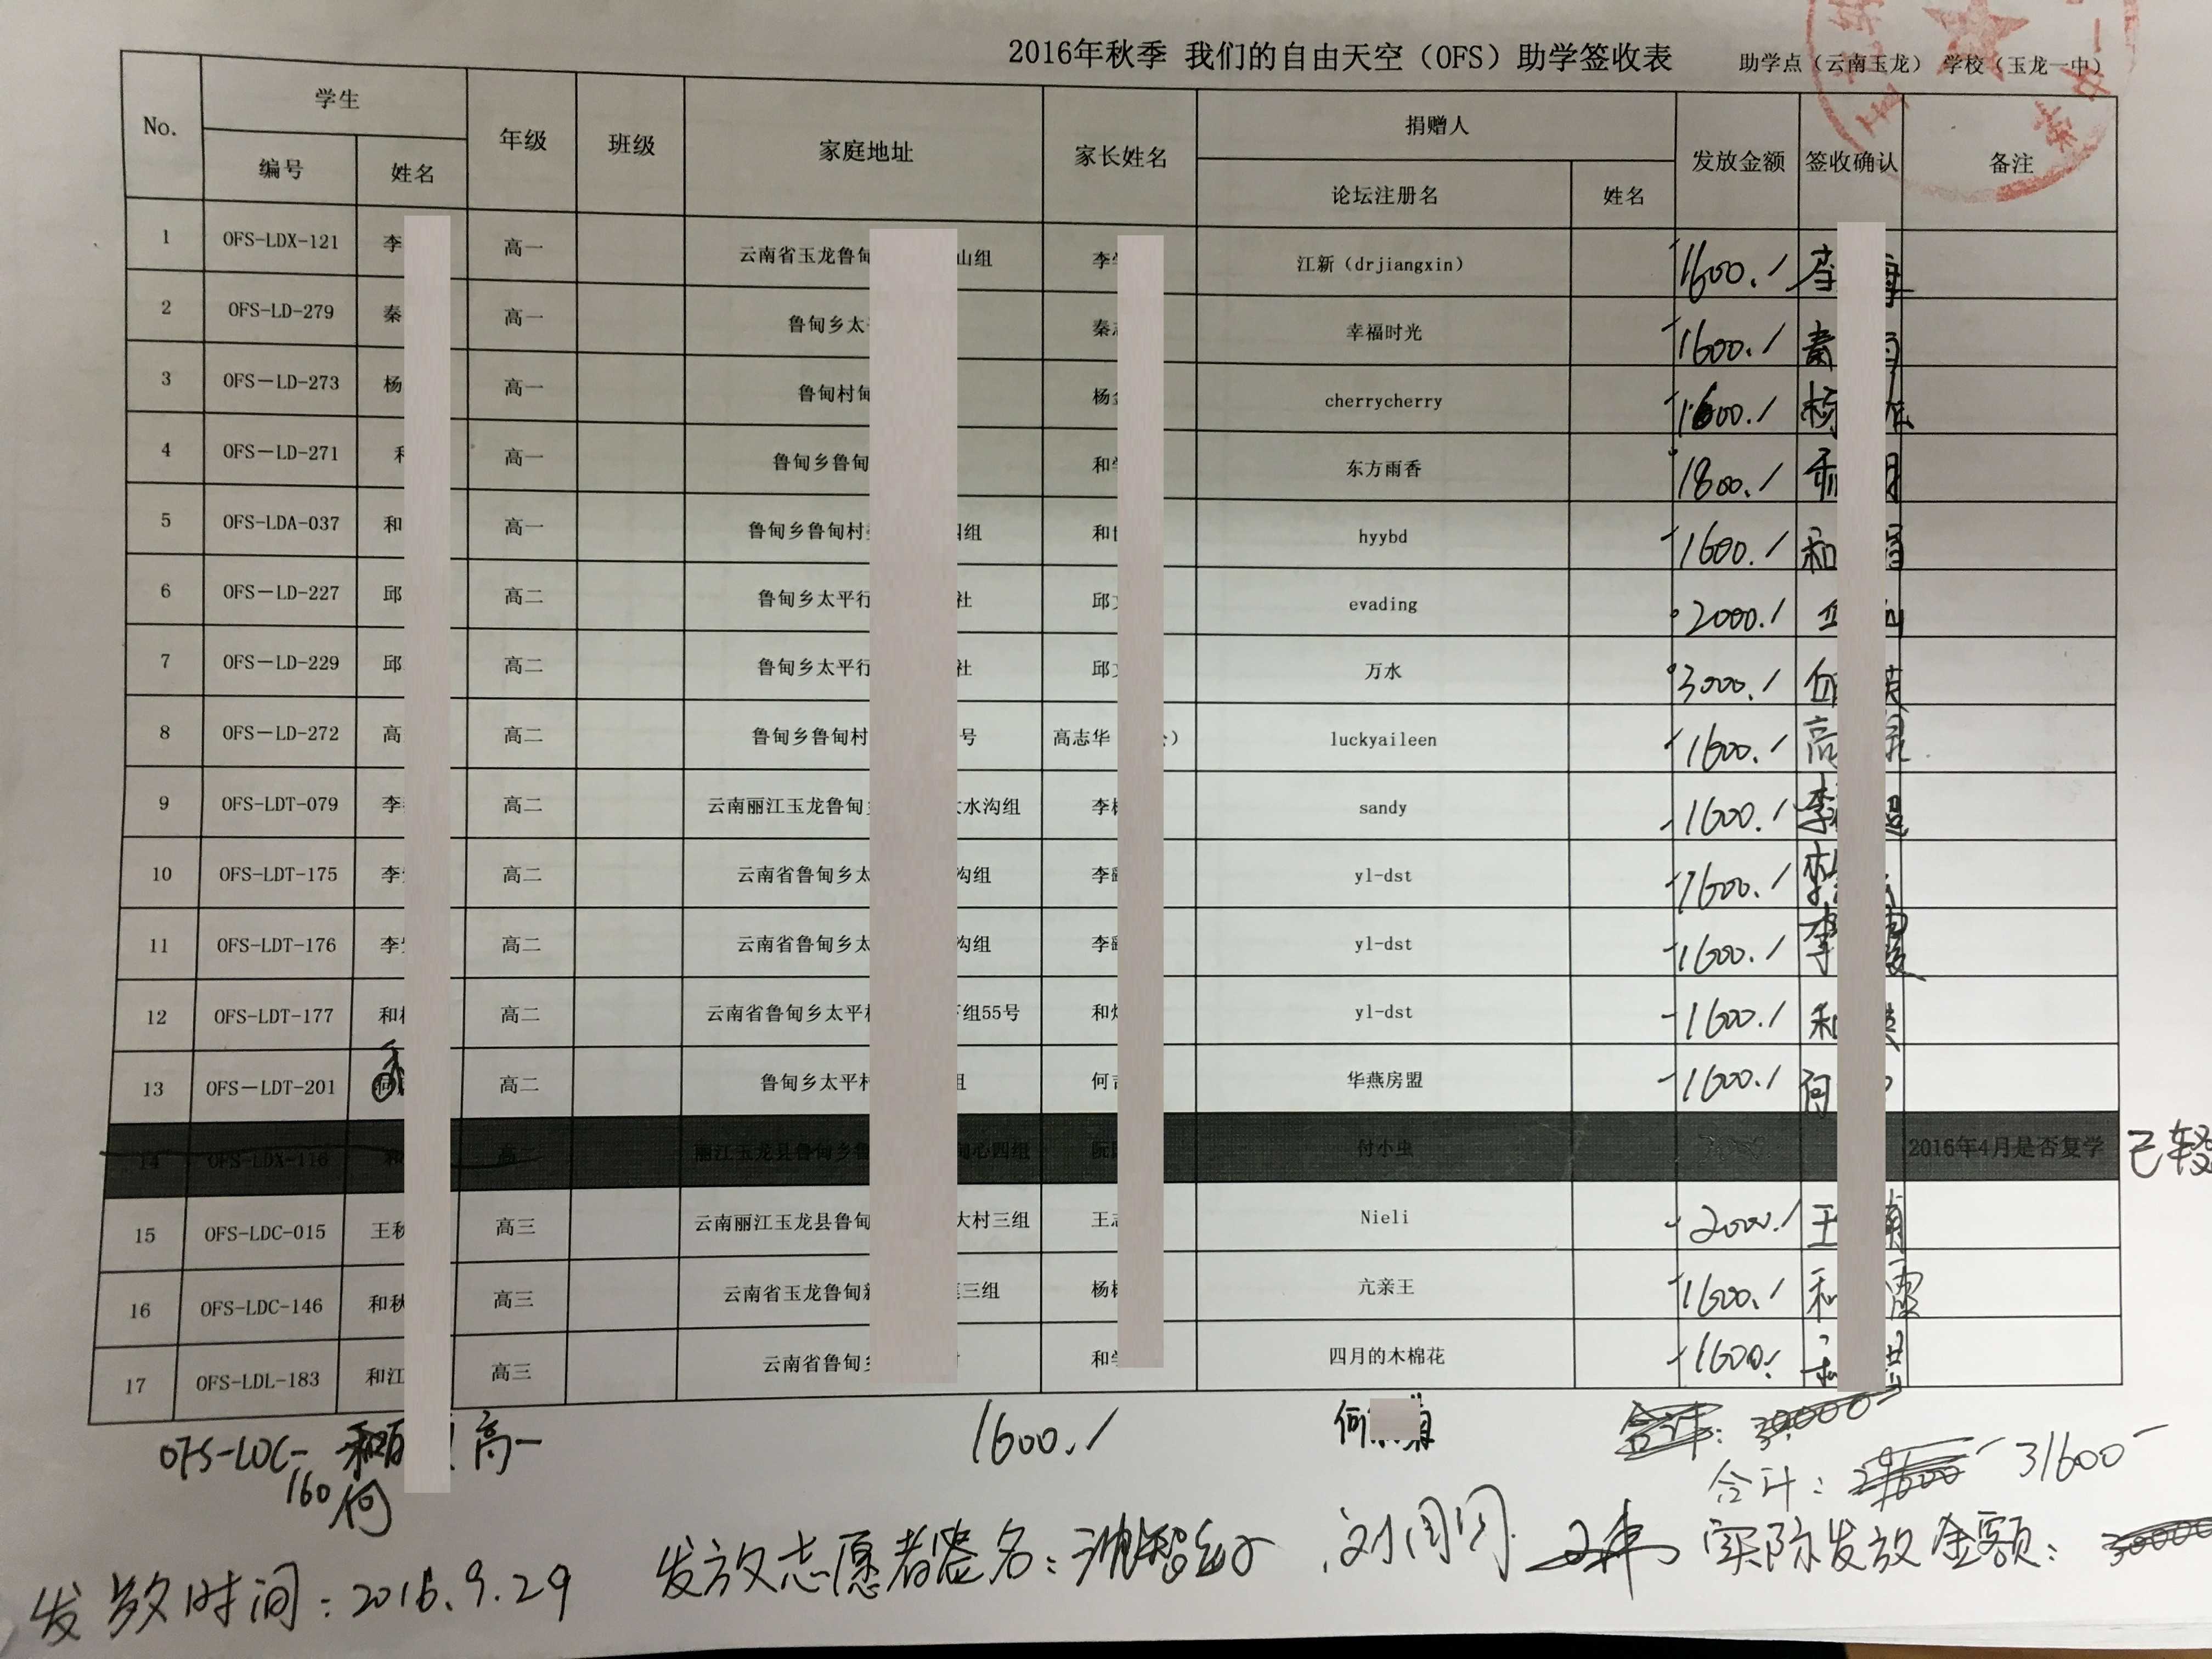 2016年秋季 我们的自由天空（OFS）助学签收表 助学点（云南玉龙） 学校（玉龙一中）
No. 学生 年级 班级 家庭地址 家长姓名 捐赠人 发放金额 签收确认 备注
编号 姓名 论坛注册名 姓名
1 OFS-LDX-121 李 高一 云南省玉龙鲁甸 山组 李 江新（drjiangxin） 1600./ 李
2 OFS-LD-279 秦 高一 鲁甸乡太 秦 幸福时光 1600./ 秦
3 OFS－LD-273 杨 高一 鲁甸村甸 杨 cherrycherry 1600./ 杨
4 OFS－LD-271 高一 鲁甸乡鲁甸 和 东方雨香 1800./ 和
5 OFS-LDA-037 和 高一 鲁甸乡鲁甸村 组 和 hyybd 1600./ 和
6 OFS－LD-227 邱 高二 鲁甸乡太平行 社 邱 evading 2000./
7 OFS－LD-229 邱 高二 鲁甸乡太平行 社 邱 万水 3000./
8 OFS－LD-272 高 高二 鲁甸乡鲁甸村 号 高志华 ） luckyaileen 1600./ 高
9 OFS-LDT-079 李 高二 云南丽江玉龙鲁甸 水沟组 李 sandy 1600./ 李
10 OFS-LDT-175 李 高二 云南省鲁甸乡太 沟组 李 yl-dst 1600./ 李
11 OFS-LDT-176 李 高二 云南省鲁甸乡太 沟组 李 yl-dst 1600./ 李
12 OFS-LDT-177 和 高二 云南省鲁甸乡太平村 组55号 和 yl-dst 1600./ 和
13 OFS－LDT-201 高二 鲁甸乡太平村 组 何 华燕房盟 1600./ 何
14 OFS-LDX-116 高二 丽江玉龙县鲁甸乡鲁 甸心四组 阮 付小虫 2016年4月是否复学 已
15 OFS-LDC-015 王秋 高三 云南丽江玉龙县鲁甸 大村三组 王 Nieli 2000./ 王
16 OFS-LDC-146 和秋 高三 云南省玉龙鲁甸新 三组 杨 亢亲王 1600./ 和
17 OFS-LDL-183 和江 高三 云南省鲁甸乡 和 四月的木棉花 1600./ 和
OFS-LDC- 高一 1600./ 何 合计：30000
160 何 合计：29600 31600
发放志愿者签名： 实际发放金额：30000
发放时间：2016.9.29